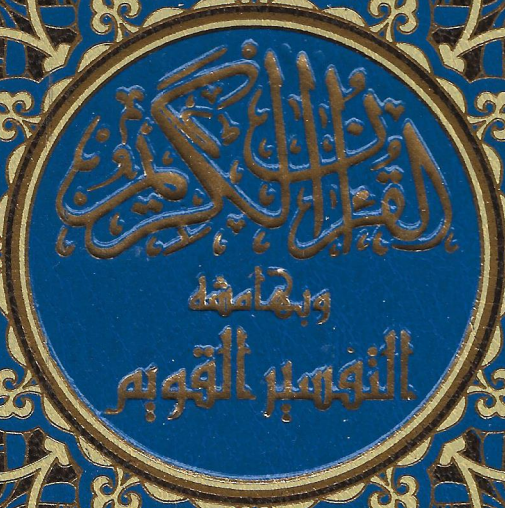 القرآن الكريم
وبهامشه
التفسير القويم